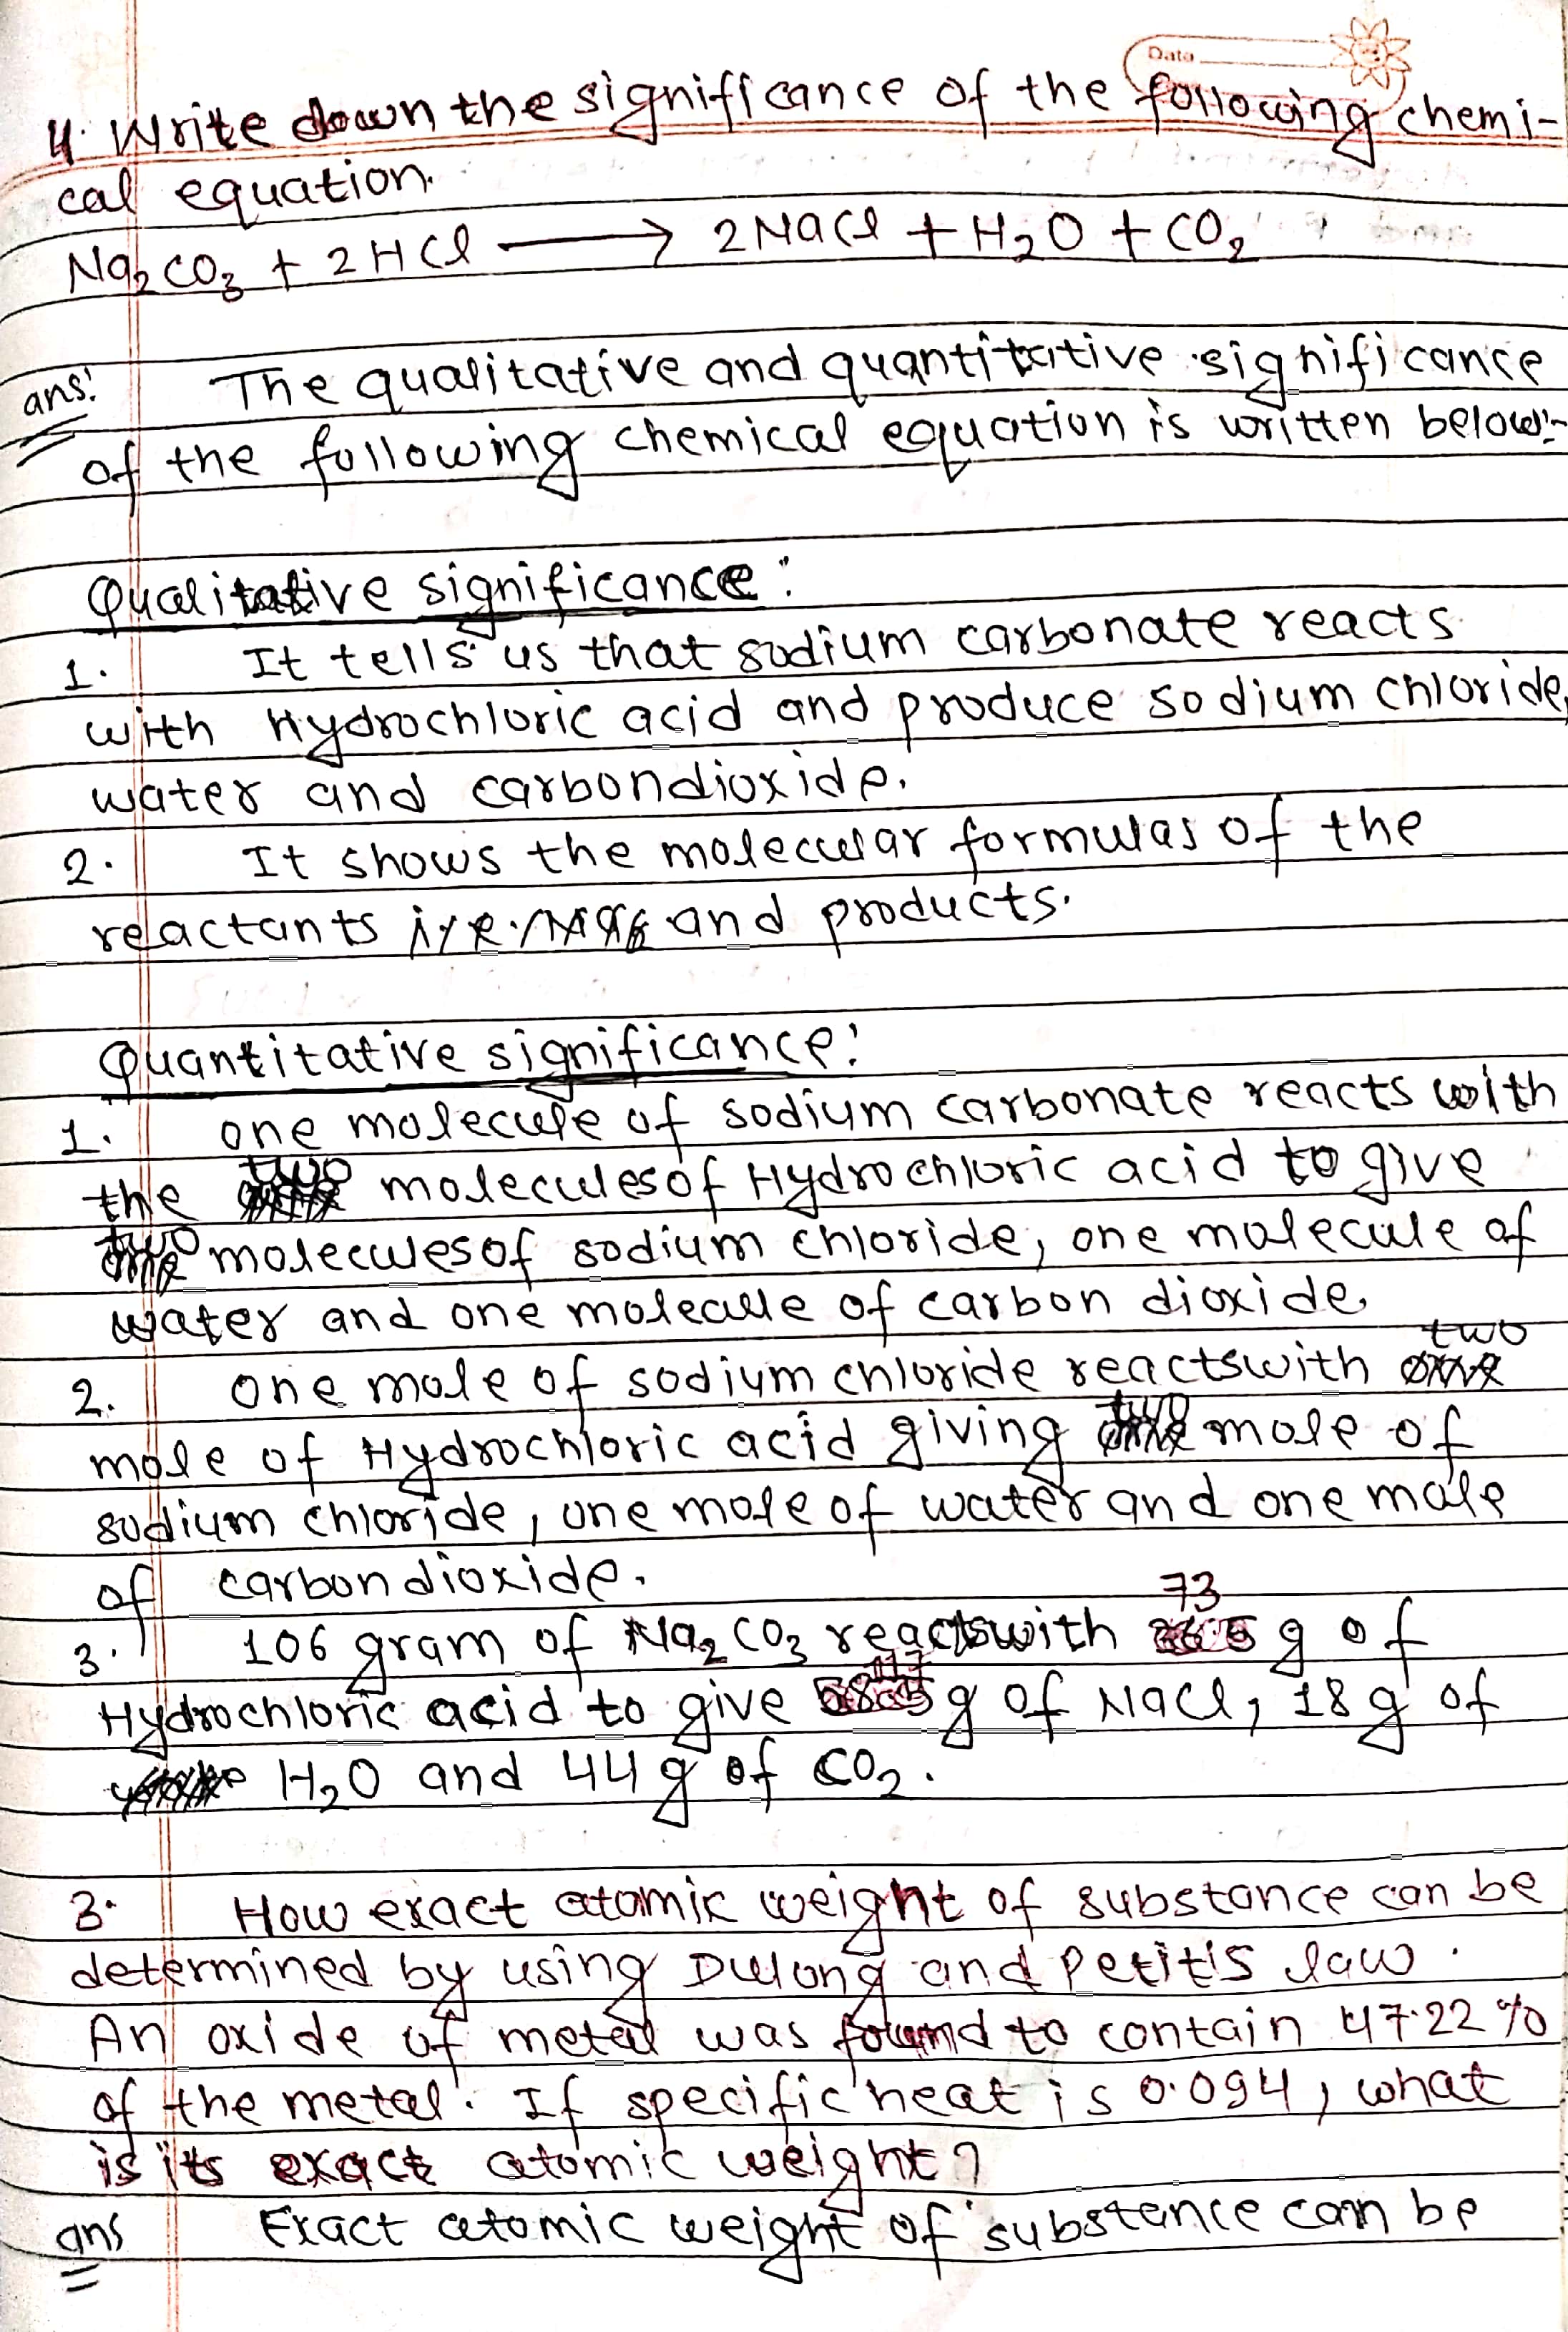 Date
4. Write down the significance of the following chemi-
cal equation.
Na₂CO₃ + 2HCl ⟶ 2NaCl + H₂O + CO₂
ans: The qualitative and quantitative significance
of the following chemical equation is written below:-
Qualitative significance:
1. It tells us that sodium carbonate reacts
with Hydrochloric acid and produce sodium chloride,
water and carbondioxide.
2. It shows the molecular formulas of the
reactants and products.
Quantitative significance:
1. one molecule of sodium carbonate reacts with
the two molecules of Hydrochloric acid to give
two molecules of sodium chloride, one molecule of
water and one molecule of carbon dioxide.
2. One mole of sodium chloride reacts with two
mole of Hydrochloric acid giving two mole of
sodium chloride, one mole of water and one mole
of carbondioxide.
3. 106 gram of Na₂CO₃ reacts with 73 g of
Hydrochloric acid to give 117 g of NaCl, 18 g of
H₂O and 44 g of CO₂.
3. How exact atomic weight of substance can be
determined by using Dulong and Petit's law.
An oxide of metal was found to contain 47.22%
of the metal. If specific heat is 0.094, what
is its exact atomic weight?
ans Exact atomic weight of substence can be